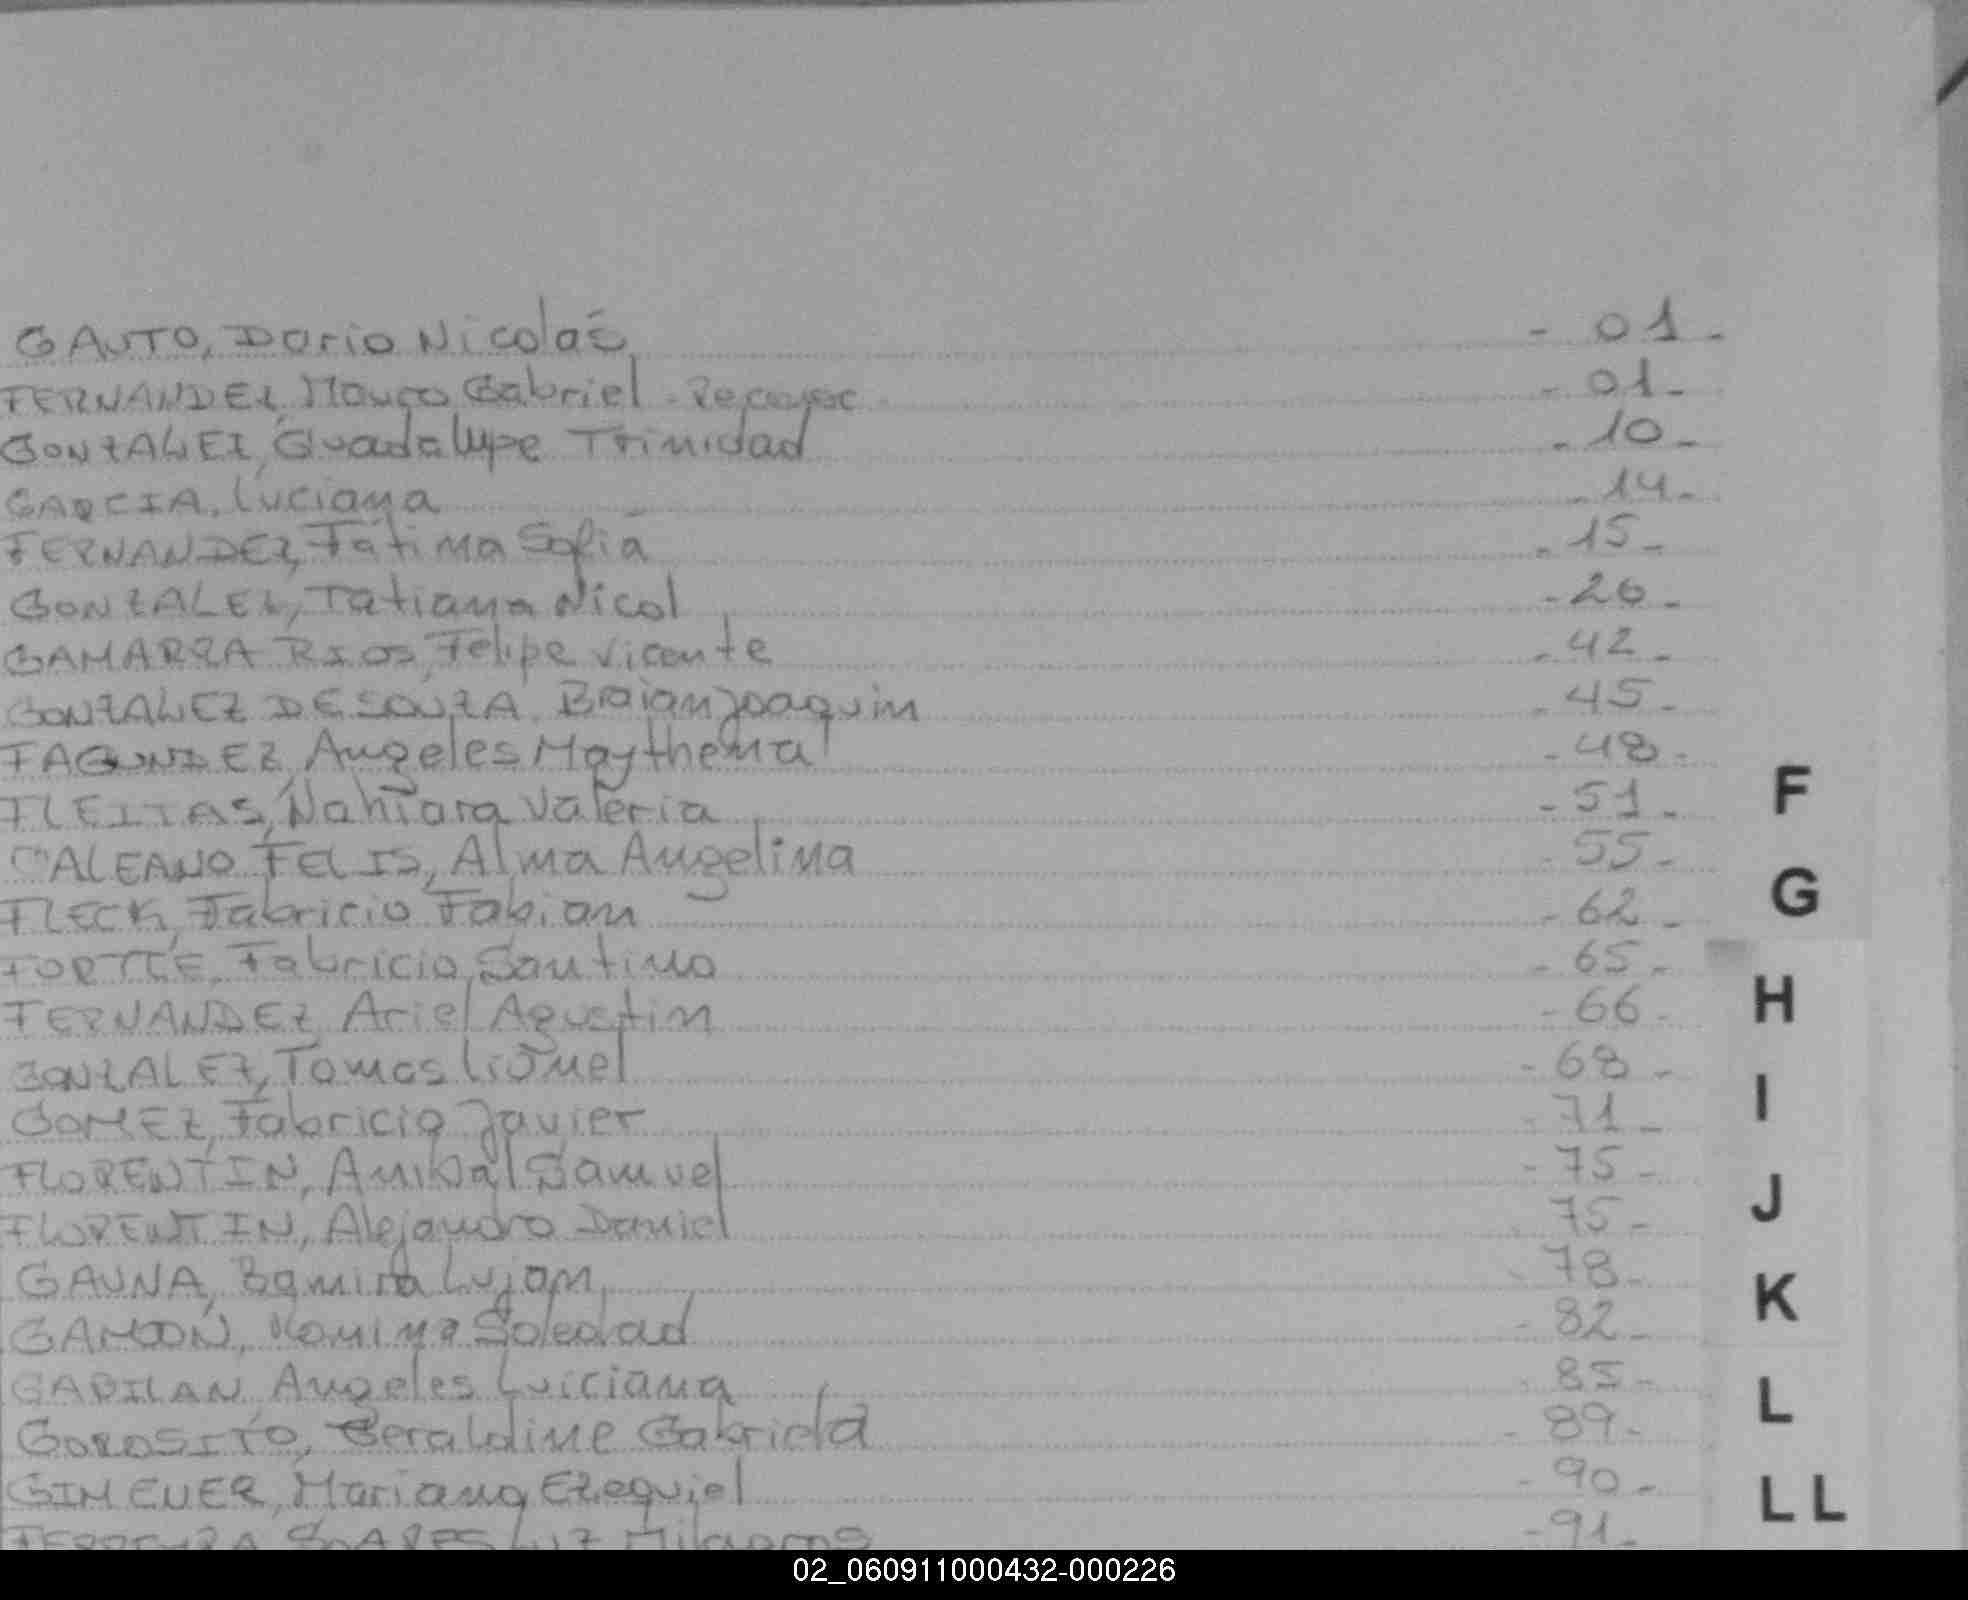 GAUTO, Dario Nicolás - 01 -
FERNANDEZ, Marco Gabriel - - 01 -
GONZALEZ, Guadalupe Trinidad - 10 -
GARCIA, Luciana - 14 -
FERNANDEZ, Fátima Sofia - 15 -
GONZALEZ, Tatiana Nicol - 26 -
GAMARRA RIOS, Felipe Vicente - 42 -
GONZALEZ DE SOUZA, Braian Joaquin - 45 -
FAGUNDEZ, Angeles Maythena - 48 -
FLEITAS, Nahiara Valeria - 51 -
GALEANO FELIS, Alma Angelina - 55 -
FLECK, Fabricio Fabian - 62 -
FORTTE, Fabricio Santino - 65 -
FERNANDEZ, Ariel Agustin - 66 -
GONZALEZ, Tomas Lionel - 68 -
GOMEZ, Fabricio Javier - 71 -
FLORENTIN, Anibal Samuel - 75 -
FLORENTIN, Alejandro Daniel - 75 -
GAUNA, Lujan - 78 -
GAMOON, Romina Soledad - 82 -
GABILAN, Angeles Luiciana - 85 -
GOROSITO, Geraldine Gabriela - 89 -
GIMENER, Mariano Ezequiel - 90 -
FERREYRA SOARES, Luz Milagros - 91 -
F
G
H
I
J
K
L
LL
02_060911000432-000226